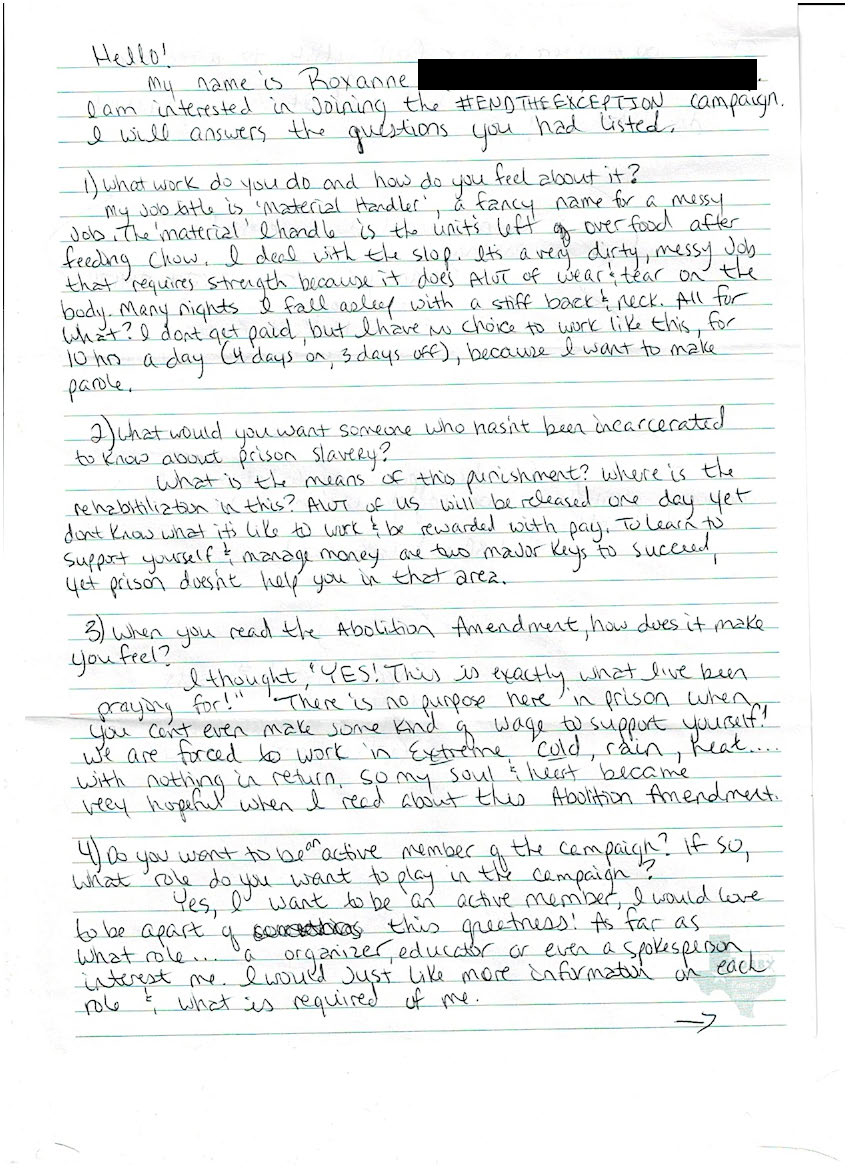 Hello!
My name is Roxanne
I am interested in Joining the #ENDTHEEXCEPTION campaign.
I will answers the questions you had listed.
1) What work do you do and how do you feel about it?
My Job title is 'Material Handler', a fancy name for a messy
Job. The 'material' I handle is the units left of over food after
feeding Chow. I deal with the slop. Its a very dirty, messy Job
that requires strength because it does ALOT of wear & tear on the
body. Many nights I fall asleep with a stiff back & neck. All for
what? I dont get paid, but I have no choice to work like this, for
10 hrs a day (4 days on, 3 days off), because I want to make
parole.
2) What would you want someone who hasn't been incarcerated
to know about prison slavery?
What is the means of this punishment? Where is the
rehabitiliation in this? ALOT of us will be released one day yet
dont know what it's like to work & be rewarded with pay. To learn to
support yourself & manage money are two major keys to succeed,
yet prison doesn't help you in that area.
3) When you read the Abolition Amendment, how does it make
you feel?
I thought, "YES! This is exactly what I've been
praying for!" There is no purpose here in prison when
you can't even make some kind of wage to support yourself!
We are forced to work in Extreme cold, rain, heat....
with nothing in return. So my soul & heart became
very hopeful when I read about this Abolition Amendment.
4) Do you want to be an active member of the campaign? If so,
what role do you want to play in the campaign?
Yes, I want to be an active member, I would love
to be apart of this greatness! As far as
what role... a organizer, educator or even a spokesperson
interest me. I would Just like more information on each
role & what is required of me.
→